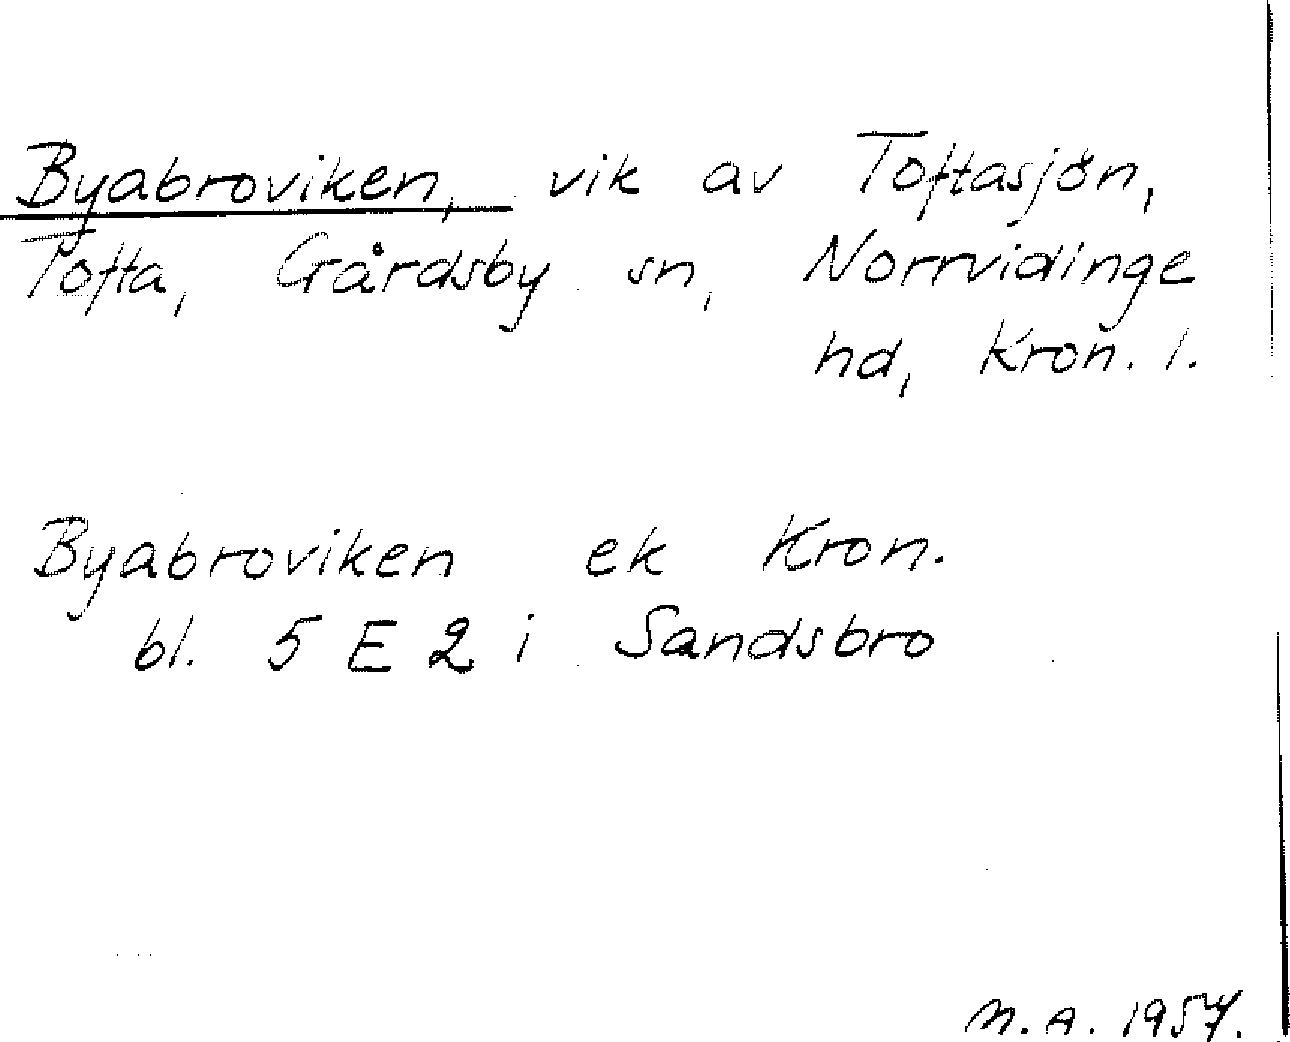 Byabroviken, vik av Toftasjön,
Tofta, Gårdsby sn, Norrvidinge
hd, Kron. l.
Byabroviken ek Kron.
bl. 5 E 2 i Sandsbro
M.A. 1957.